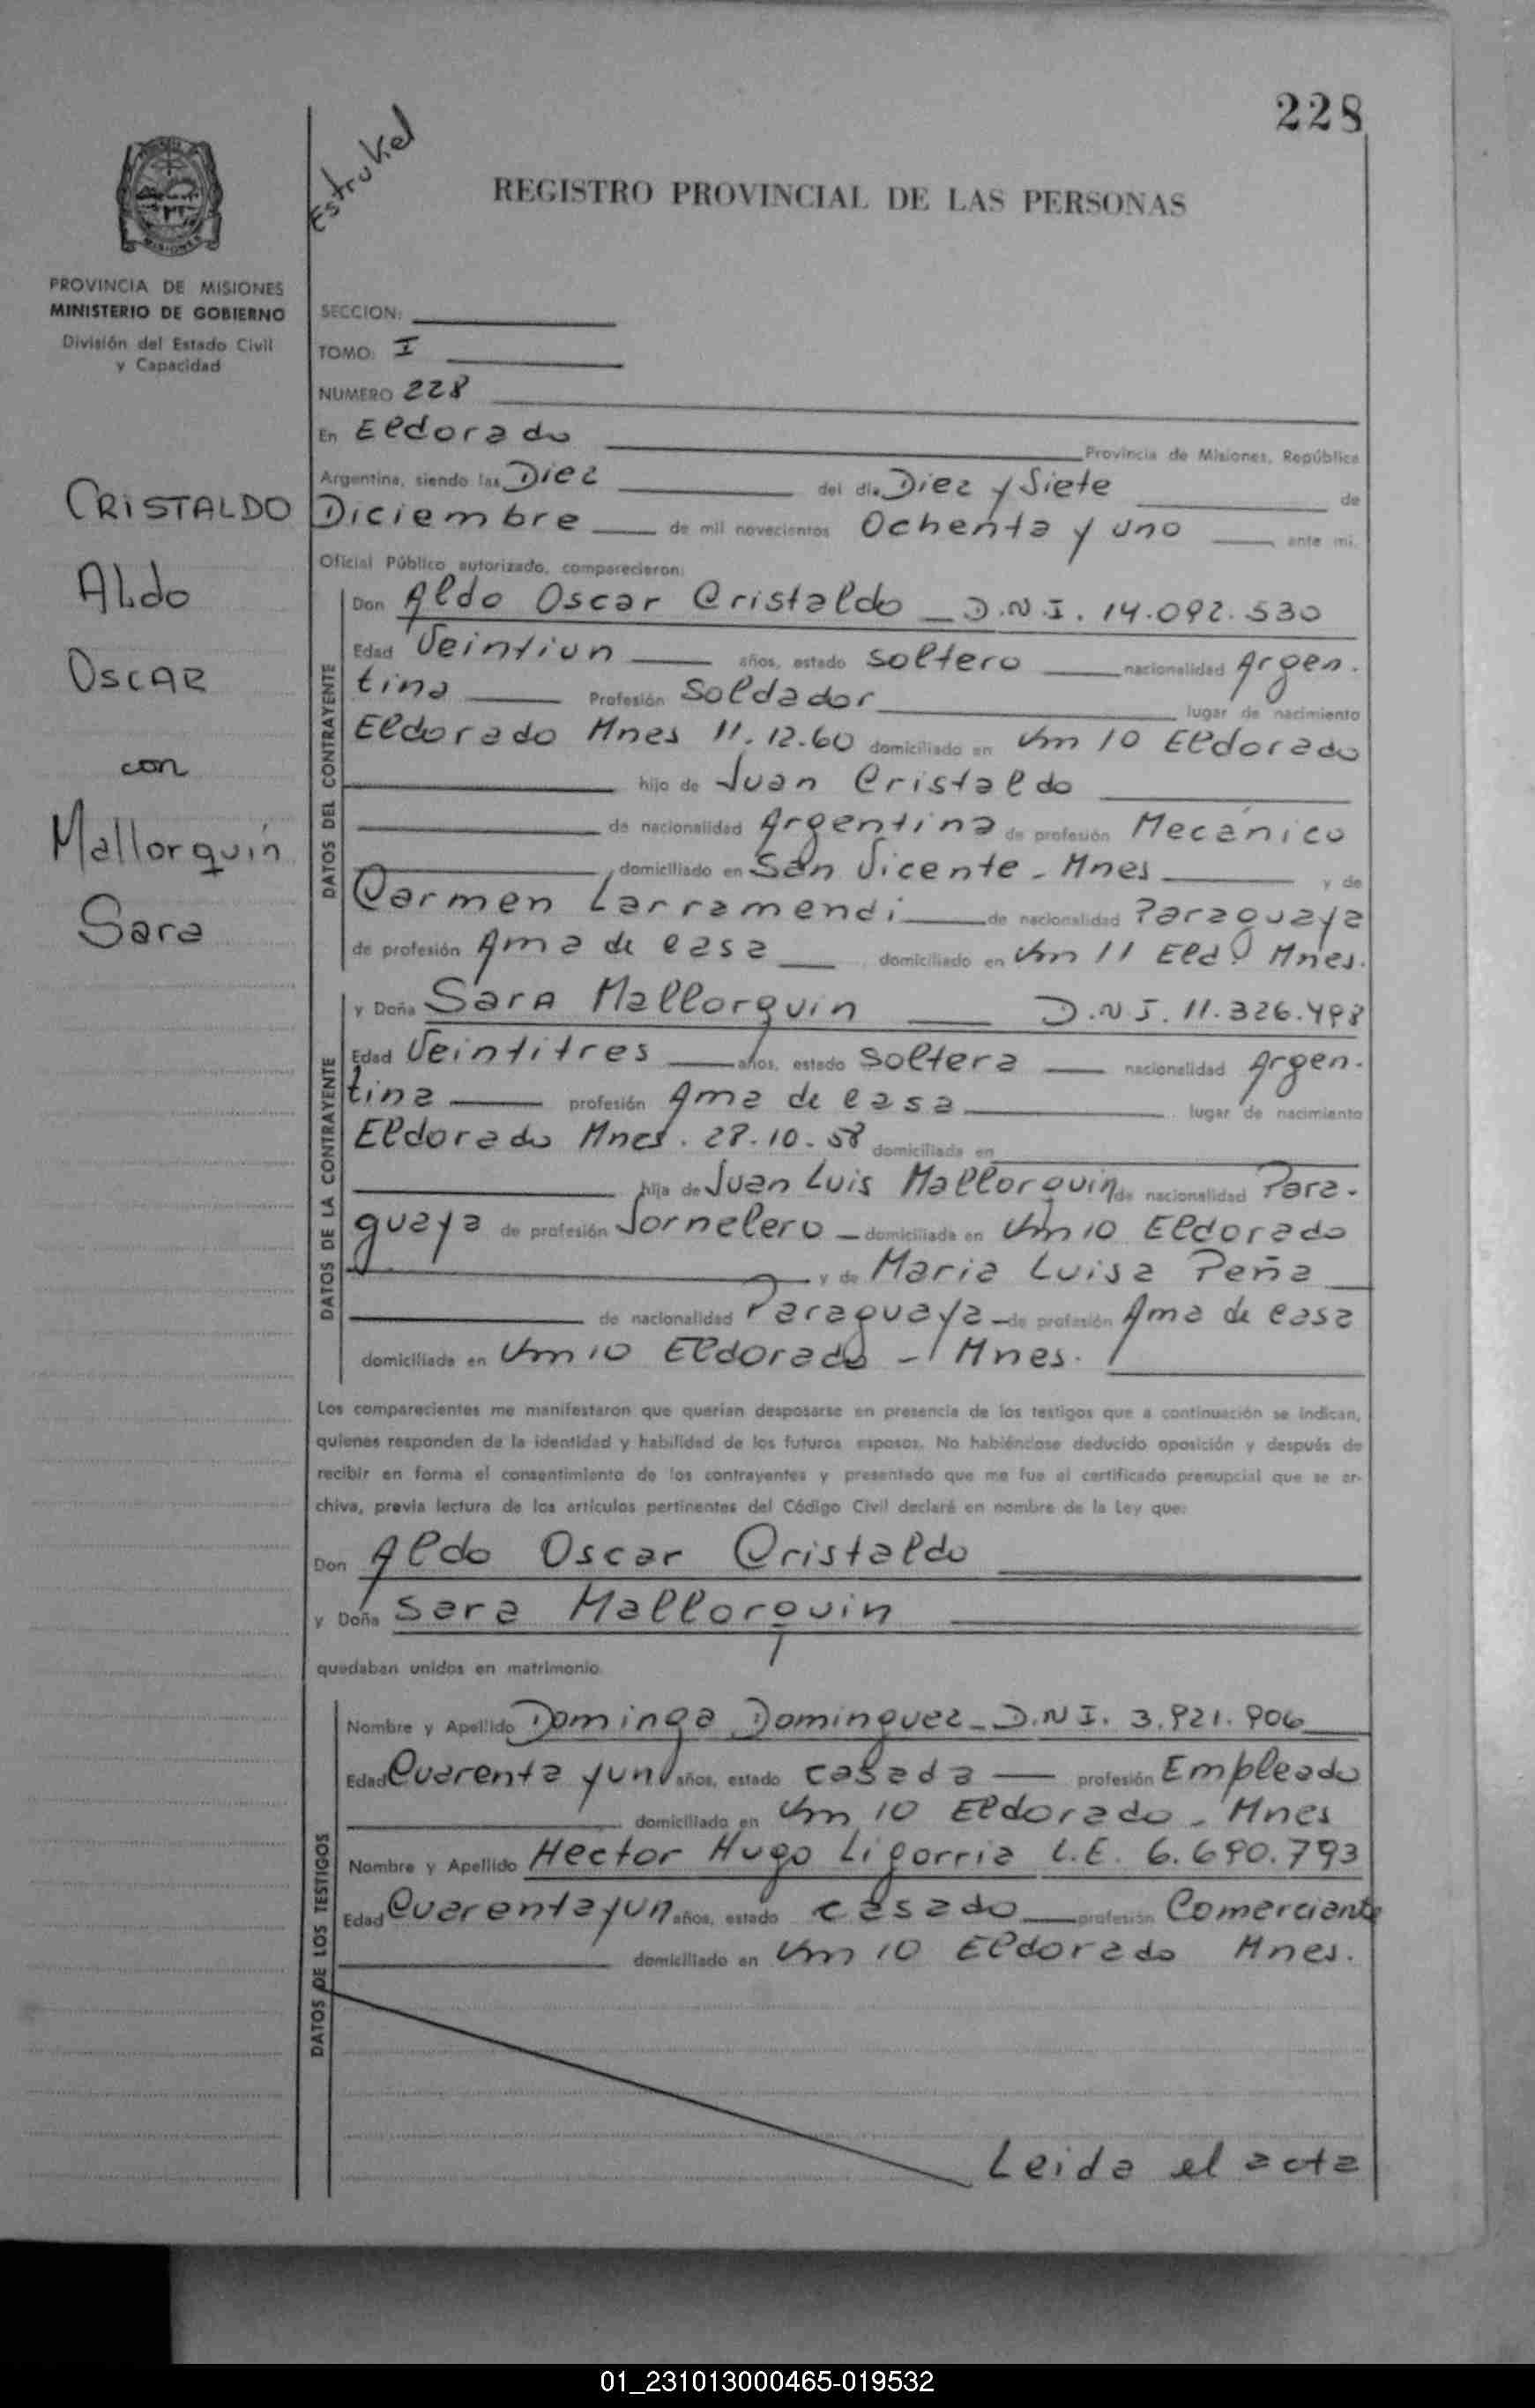 228
Estrokel
REGISTRO PROVINCIAL DE LAS PERSONAS
MISIONES
PROVINCIA DE MISIONES
MINISTERIO DE GOBIERNO
División del Estado Civil
y Capacidad
CRISTALDO
ALdo
OSCAR
con
Mallorquín
Sara
SECCION:
TOMO: I
NUMERO 228
En Eldorado Provincia de Misiones, República
Argentina, siendo las Diez del día Diez y Siete de
Diciembre de mil novecientos Ochenta y uno ante mi,
Oficial Público autorizado, comparecieron:
DATOS DEL CONTRAYENTE
Don Aldo Oscar Cristaldo _ D.N.I. 14.092.530
Edad Veintiun años, estado soltero nacionalidad Argen-
tina Profesión Soldador lugar de nacimiento
Eldorado Mnes 11.12.60 domiciliado en Km 10 Eldorado
hijo de Juan Cristaldo
de nacionalidad Argentina de profesión Mecánico
domiciliado en San Vicente - Mnes y de
Carmen Larramendi de nacionalidad Paraguaya
de profesión Ama de casa domiciliado en Km 11 Eldº Mnes.
DATOS DE LA CONTRAYENTE
y Doña Sara Mallorquin D.N.I. 11.326.498
Edad Veintitres años, estado soltera nacionalidad Argen-
tina profesión Ama de casa lugar de nacimiento
Eldorado Mnes. 28.10.58 domiciliada en
hija de Juan Luis Mallorquin de nacionalidad Para-
guaya de profesión Jornalero domiciliada en Km 10 Eldorado
y de Maria Luisa Peña
de nacionalidad Paraguaya de profesión Ama de casa
domiciliada en Km 10 Eldorado - Mnes.
Los comparecientes me manifestaron que querían desposarse en presencia de los testigos que a continuación se indican,
quienes responden de la identidad y habilidad de los futuros esposos. No habiéndose deducido oposición y después de
recibir en forma el consentimiento de los contrayentes y presentado que me fue el certificado prenupcial que se ar-
chiva, previa lectura de los artículos pertinentes del Código Civil declaré en nombre de la Ley que:
Don Aldo Oscar Cristaldo
y Doña Sara Mallorquin
quedaban unidos en matrimonio.
DATOS DE LOS TESTIGOS
Nombre y Apellido Dominga Dominguez - D.N.I. 3.921.906
Edad Cuarenta y un años, estado casada profesión Empleado
domiciliado en Km 10 Eldorado - Mnes
Nombre y Apellido Hector Hugo Ligorria L.E. 6.690.793
Edad Cuarenta y un años, estado casado profesión Comerciante
domiciliado en Km 10 Eldorado Mnes.
Leida el acta
01_231013000465-019532